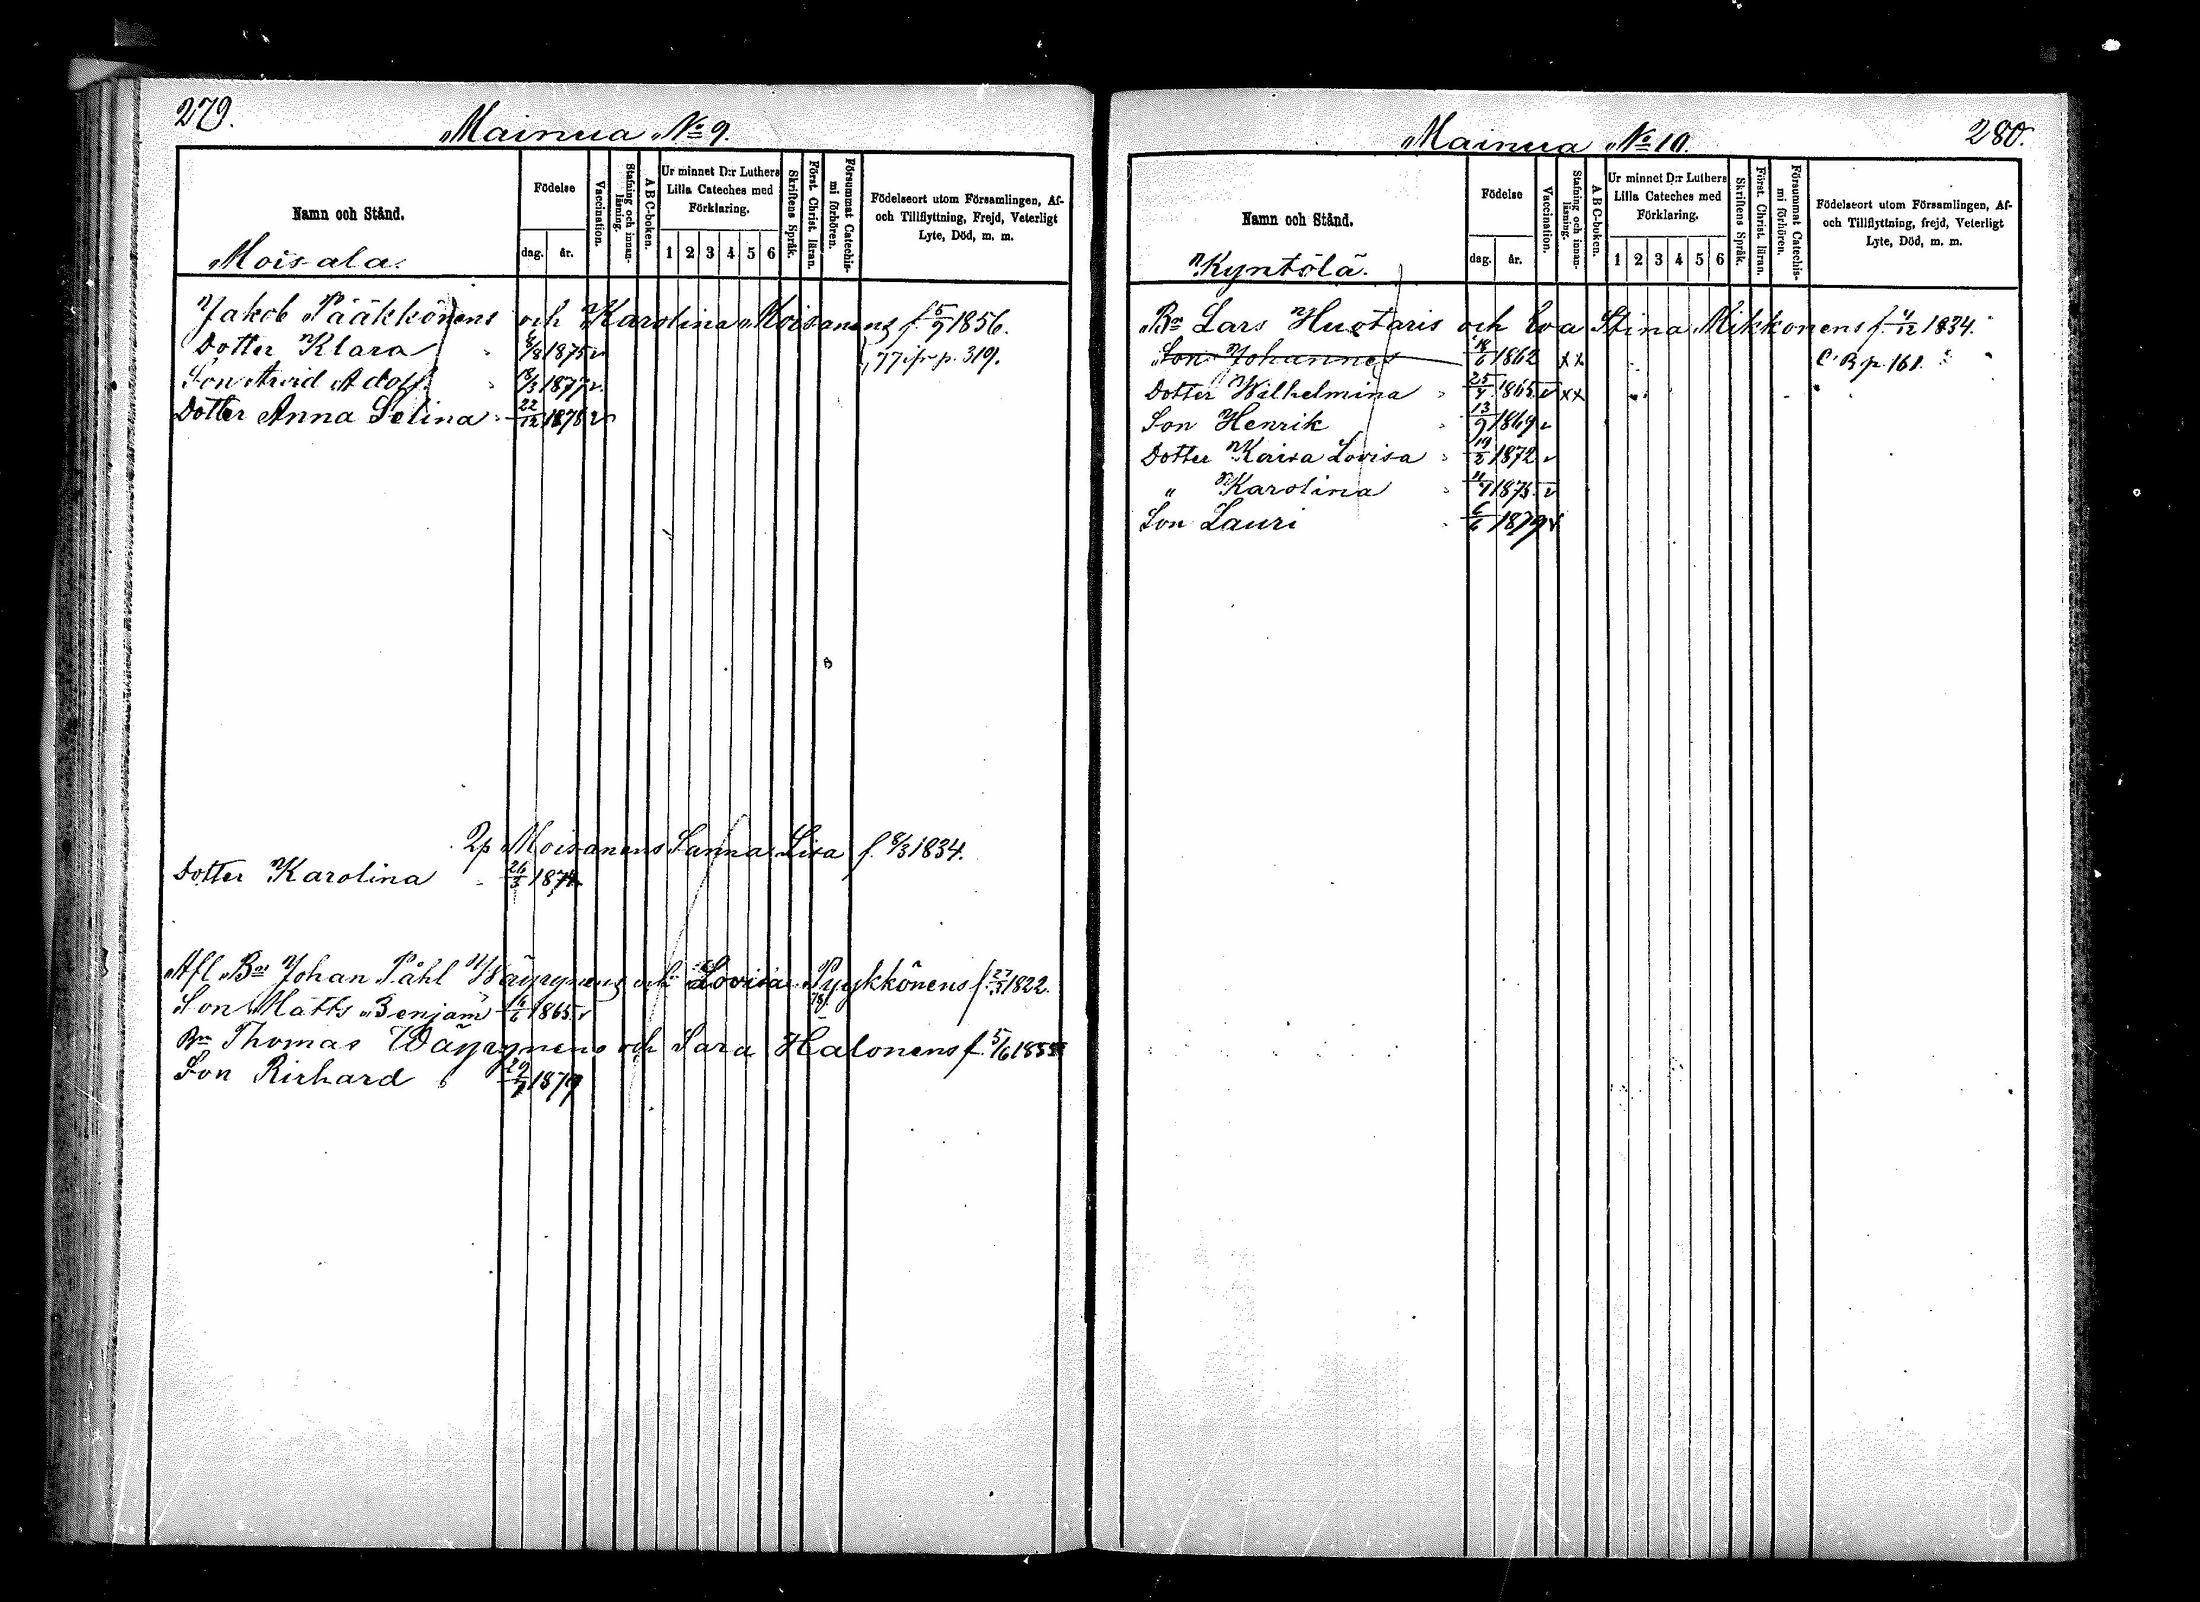 279.
Mainua No 9.
Namn och Stånd.
Födelse
dag. år.
Vaccination.
Stafning och innan-
läsning.
A B C-boken.
Ur minnet D:r Luthers
Lilla Cateches med
Förklaring.
1 2 3 4 5 6
Skriftens Språk.
Först. Christ. läran.
Försummat Catechis-
mi förhören.
Födelseort utom Församlingen, Af-
och Tillflyttning, Frejd, Veterligt
Lyte, Död, m. m.
Moisala.
Jakob Pääkkönens och Karolina Moisanens f. 5/9 1856.
Dotter Klara 1875 v 77 ifr p. 319.
Son Arvid Adolf 18/3 1877 v
Dotter Anna Selina 22/12 1878 v
Moisanens Sanna Lisa f. 8/3 1834.
Dotter Karolina 26/3
Afl Bn Johan Påhl Wäyrynens och Lovisa Pyykkönens f. 1822.
Son Matts Benjam 1865 v
Bn Thomas Wäyrynens och Sara Halonens f. 5/6
Son Richard 1879
280.
Mainua No 10.
Namn och Stånd.
Födelse
dag. år.
Vaccination.
Stafning och innan-
läsning.
A B C-boken.
Ur minnet D:r Luthers
Lilla Cateches med
Förklaring.
1 2 3 4 5 6
Skriftens Språk.
Först. Christ. läran.
Försummat Catechis-
mi förhören.
Födelseort utom Församlingen, Af-
och Tillflyttning, frejd, Veterligt
Lyte, Död, m. m.
Kyntölä.
Bn Lars Huotaris och Eva Stina Mikkonens f. 4/12 1834.
Son Johannes 18/6 1862 xx C. B p. 161.
Dotter Wilhelmina 1865 v xx
Son Henrik 13/9 1869 v
Dotter Kaisa Lovisa 19/2 1872 v
" Karolina 1875 v
Son Lauri 6/6 1879 v